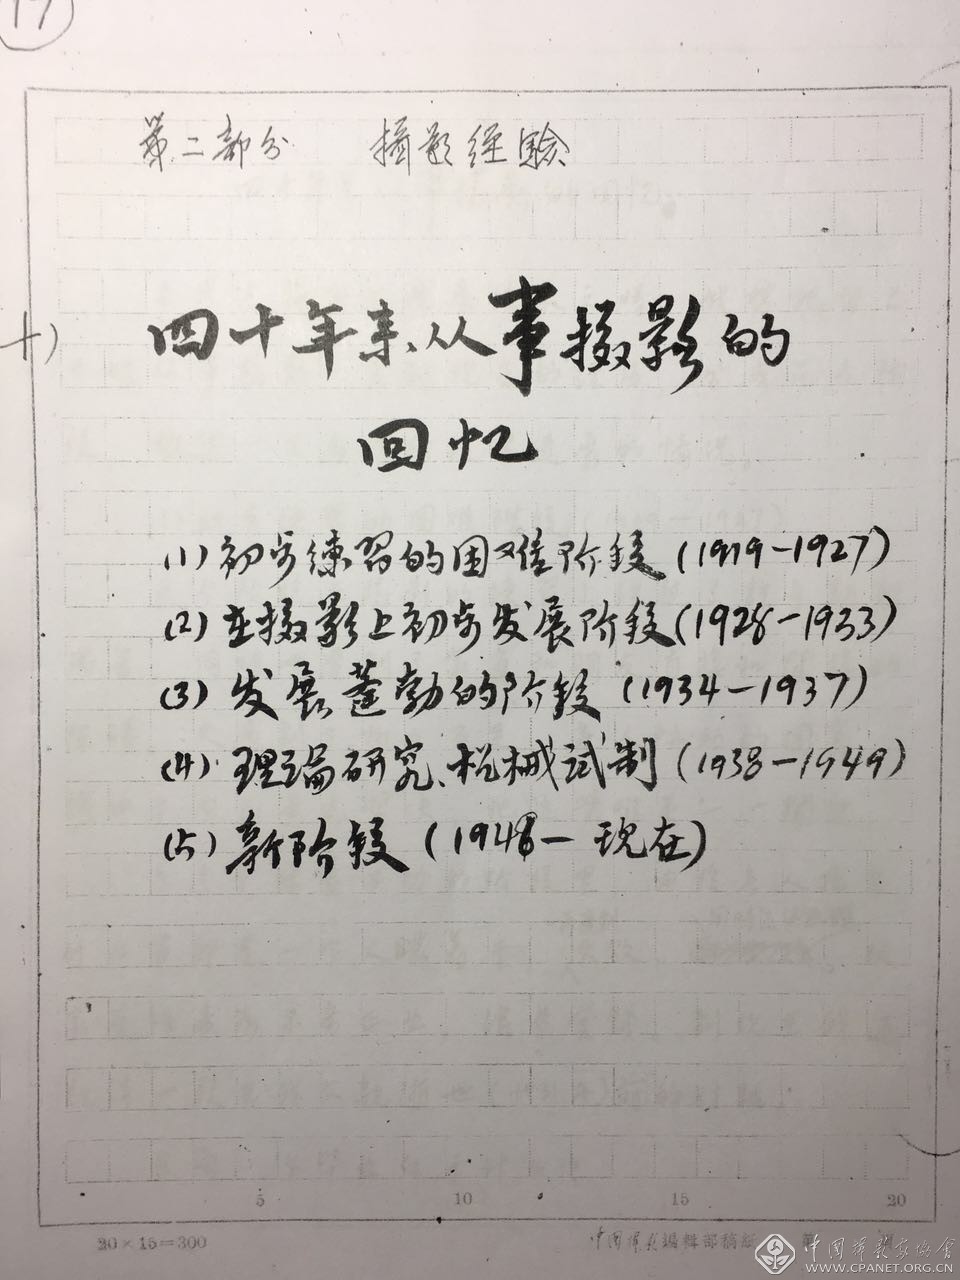 17
第二部分 攝影經驗
十)
四十年来从事摄影的
回忆
(1) 初步練習的困难阶段 (1919-1927)
(2) 在摄影上初步发展阶段 (1928-1933)
(3) 发展蓬勃的阶段 (1934-1937)
(4) 理论研究、机械试制 (1938-1949)
(5) 新阶段 (1948- 现在)
5 10 15 20
20×15=300 中国摄影編輯部稿紙
中国摄影家協會
WWW.CPANET.ORG.CN